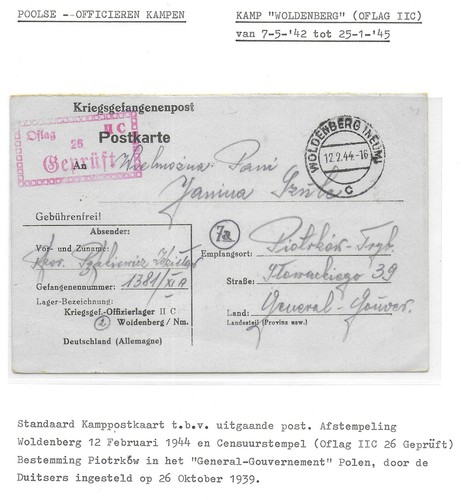 POOLSE -- OFFICIEREN KAMPEN
KAMP "WOLDENBERG" (OFLAG IIC)
van 7-5-'42 tot 25-1-'45
Kriegsgefangenenpost
Oflag II C
26
Geprüft
Postkarte
An Wielmożna Pani
Janina
WOLDENBERG (NEUM)
12.2.44.-10
c
Gebührenfrei!
Absender:
Vor- und Zuname:
Gefangenennummer: 1381/XI A
Lager-Bezeichnung:
Kriegsgef.-Offizierlager II C
2 Woldenberg / Nm.
Deutschland (Allemagne)
7a
Piotrków-Tryb.
Empfangsort:
Straße: Słowackiego 39
Land: General-Gouver.
Landesteil (Provinz usw.)
Standaard Kamppostkaart t.b.v. uitgaande post. Afstempeling
Woldenberg 12 Februari 1944 en Censuurstempel (Oflag IIC 26 Geprüft)
Bestemming Piotrków in het "General-Gouvernement" Polen, door de
Duitsers ingesteld op 26 Oktober 1939.